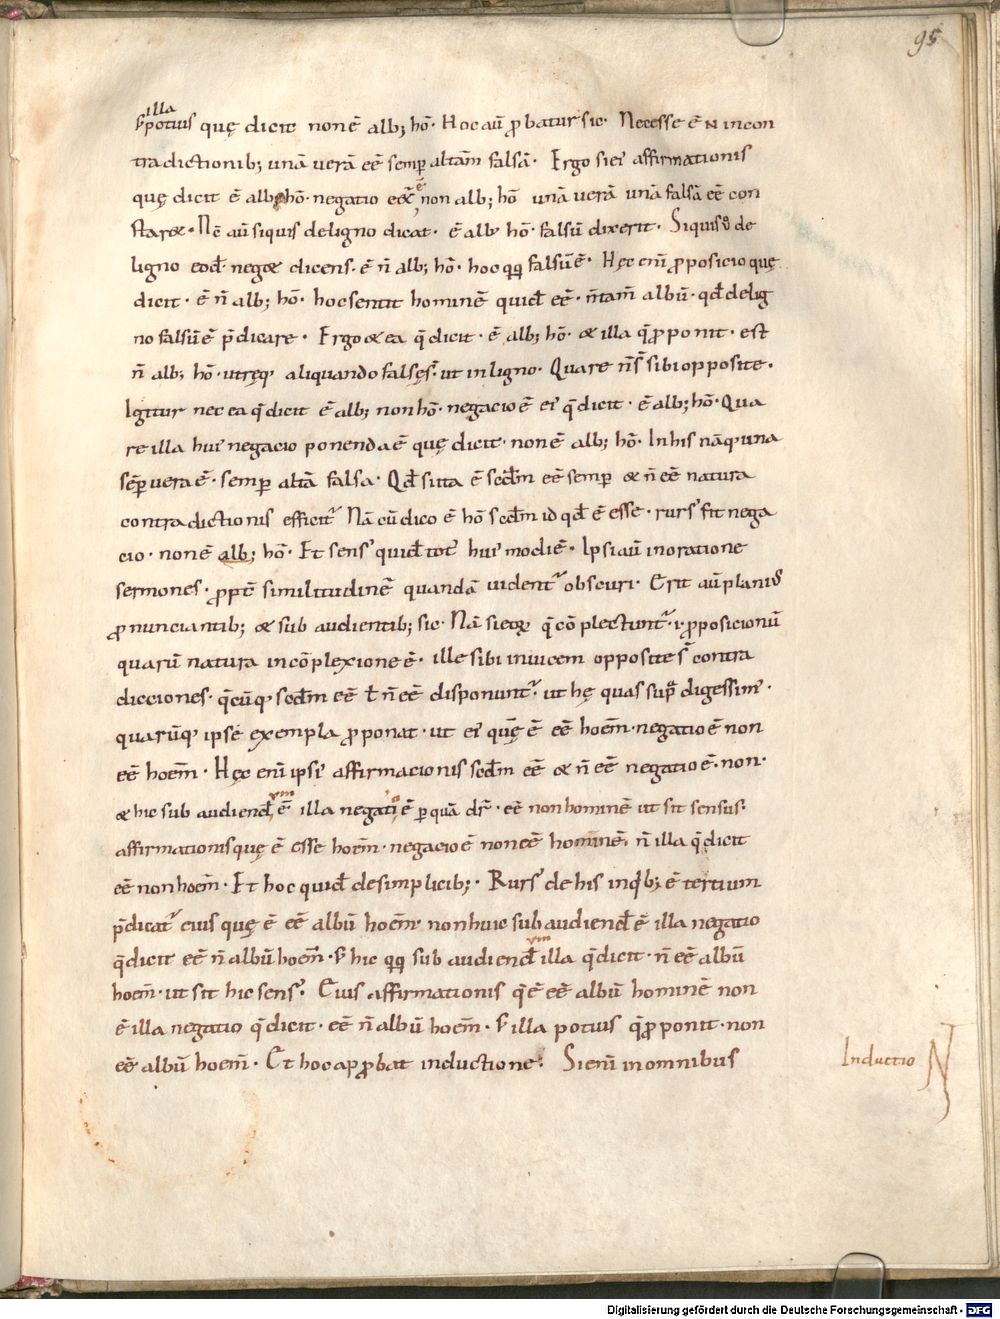 95
illa
s; potius quę dicit non ē alb; hō. Hoc aū ꝓbatur sic. Necesse ē ɴ incon
tradictionib; unā uerā eē semꝑ altām falsā. Ergo si ei affirmationis
quę dicit ē alb; hō. negatio eēt ē non alb; hō unā uerā unā falsā eē con
staret. Nē aū siquis de ligno dicat. ē alb' hō. falsū dixerit. Siquis ů de
ligno eođ neget dicens. ē n̄ alb; hō. hoc qq; falsū ē. Hęc eni ꝓposicio quę
dicit. ē n̄ alb; hō. hoc sentit hominē quiđ eē. n̄ tam̄ albū. qđ de lig
no falsū ē p̄dicare. Ergo & ea q̄ dicit. ē alb; hō. & illa q̄ ꝓponit. est
n̄ alb; hō. utręq; aliquando falsęs̄. ut in ligno. Quare n̄ s̄ sibi opposite.
Igitur nec ea q̄ dicit ē alb; non hō. negacio ē ei q̄ dicit. ē alb; hō. Qua
re illa hui' negacio ponenda ē quę dicit. non ē alb; hō. In his nāq; una
sēꝑ uera ē. semꝑ altā falsa. Qđ si ita ē scđm eē semꝑ & n̄ eē natura
contradictionis efficit̄ Nā cū dico ē hō scđm id qđ ē esse. rurs' fit nega
cio. non ē alb; hō. Et sens' quiđ tot' hui' modi ē. Ipsi aū in oratione
sermones. ꝓpt̄ similitudinē quandā uident̄ obscuri. Erit aū plani'
ꝓnunciantib; & sub audientib; sic. Nā si eoꝝ q̄ cōplectunt̄. i. ꝓposicionū
quarū natura in cōplexione ē. ille sibi inuicem opposite s̄ contra
dicciones. q̄cūq; scđm eē ł n̄ eē disponunt̄. ut hę quas sup̄ digessim'.
quarūq; ipse exempla ꝓponat. ut ei' quę ē eē hoēm. negatio ē non
eē hoēm. Hęc eni ipsi' affirmacionis scđm eē & n̄ eē negatio ē. non.
& hic sub audienđ ū ē illa negatio ē ꝑ quā dr̄. eē non hominē ut sit sensus.
affirmationis quę ē esse hoēm. negacio ē non eē hominē. n̄ illa q̄ dicit
eē non hoēm. Et hoc quiđ de simplicib;. Rurs' de his inq'b; ē tertium
p̄dicat̄ eius quę ē eē albū hoēm. non huic sub audienđ ē illa negatio
q̄ dicit eē n̄ albū hoēm. s; hic qq; sub audienđ illa q̄ dicit. n̄ eē albū
um
hoēm. ut sit hic sens'. Eius affirmationis q̄ ē eē albū hominē non
ē illa negatio q̄ dicit. eē n̄ albū hoēm. s; illa potius q̄ ꝓponit. non
eē albū hoēm. Et hoc apꝓbat inductione. Si eni in omnibus
Inductio
Digitalisierung gefördert durch die Deutsche Forschungsgemeinschaft - DFG